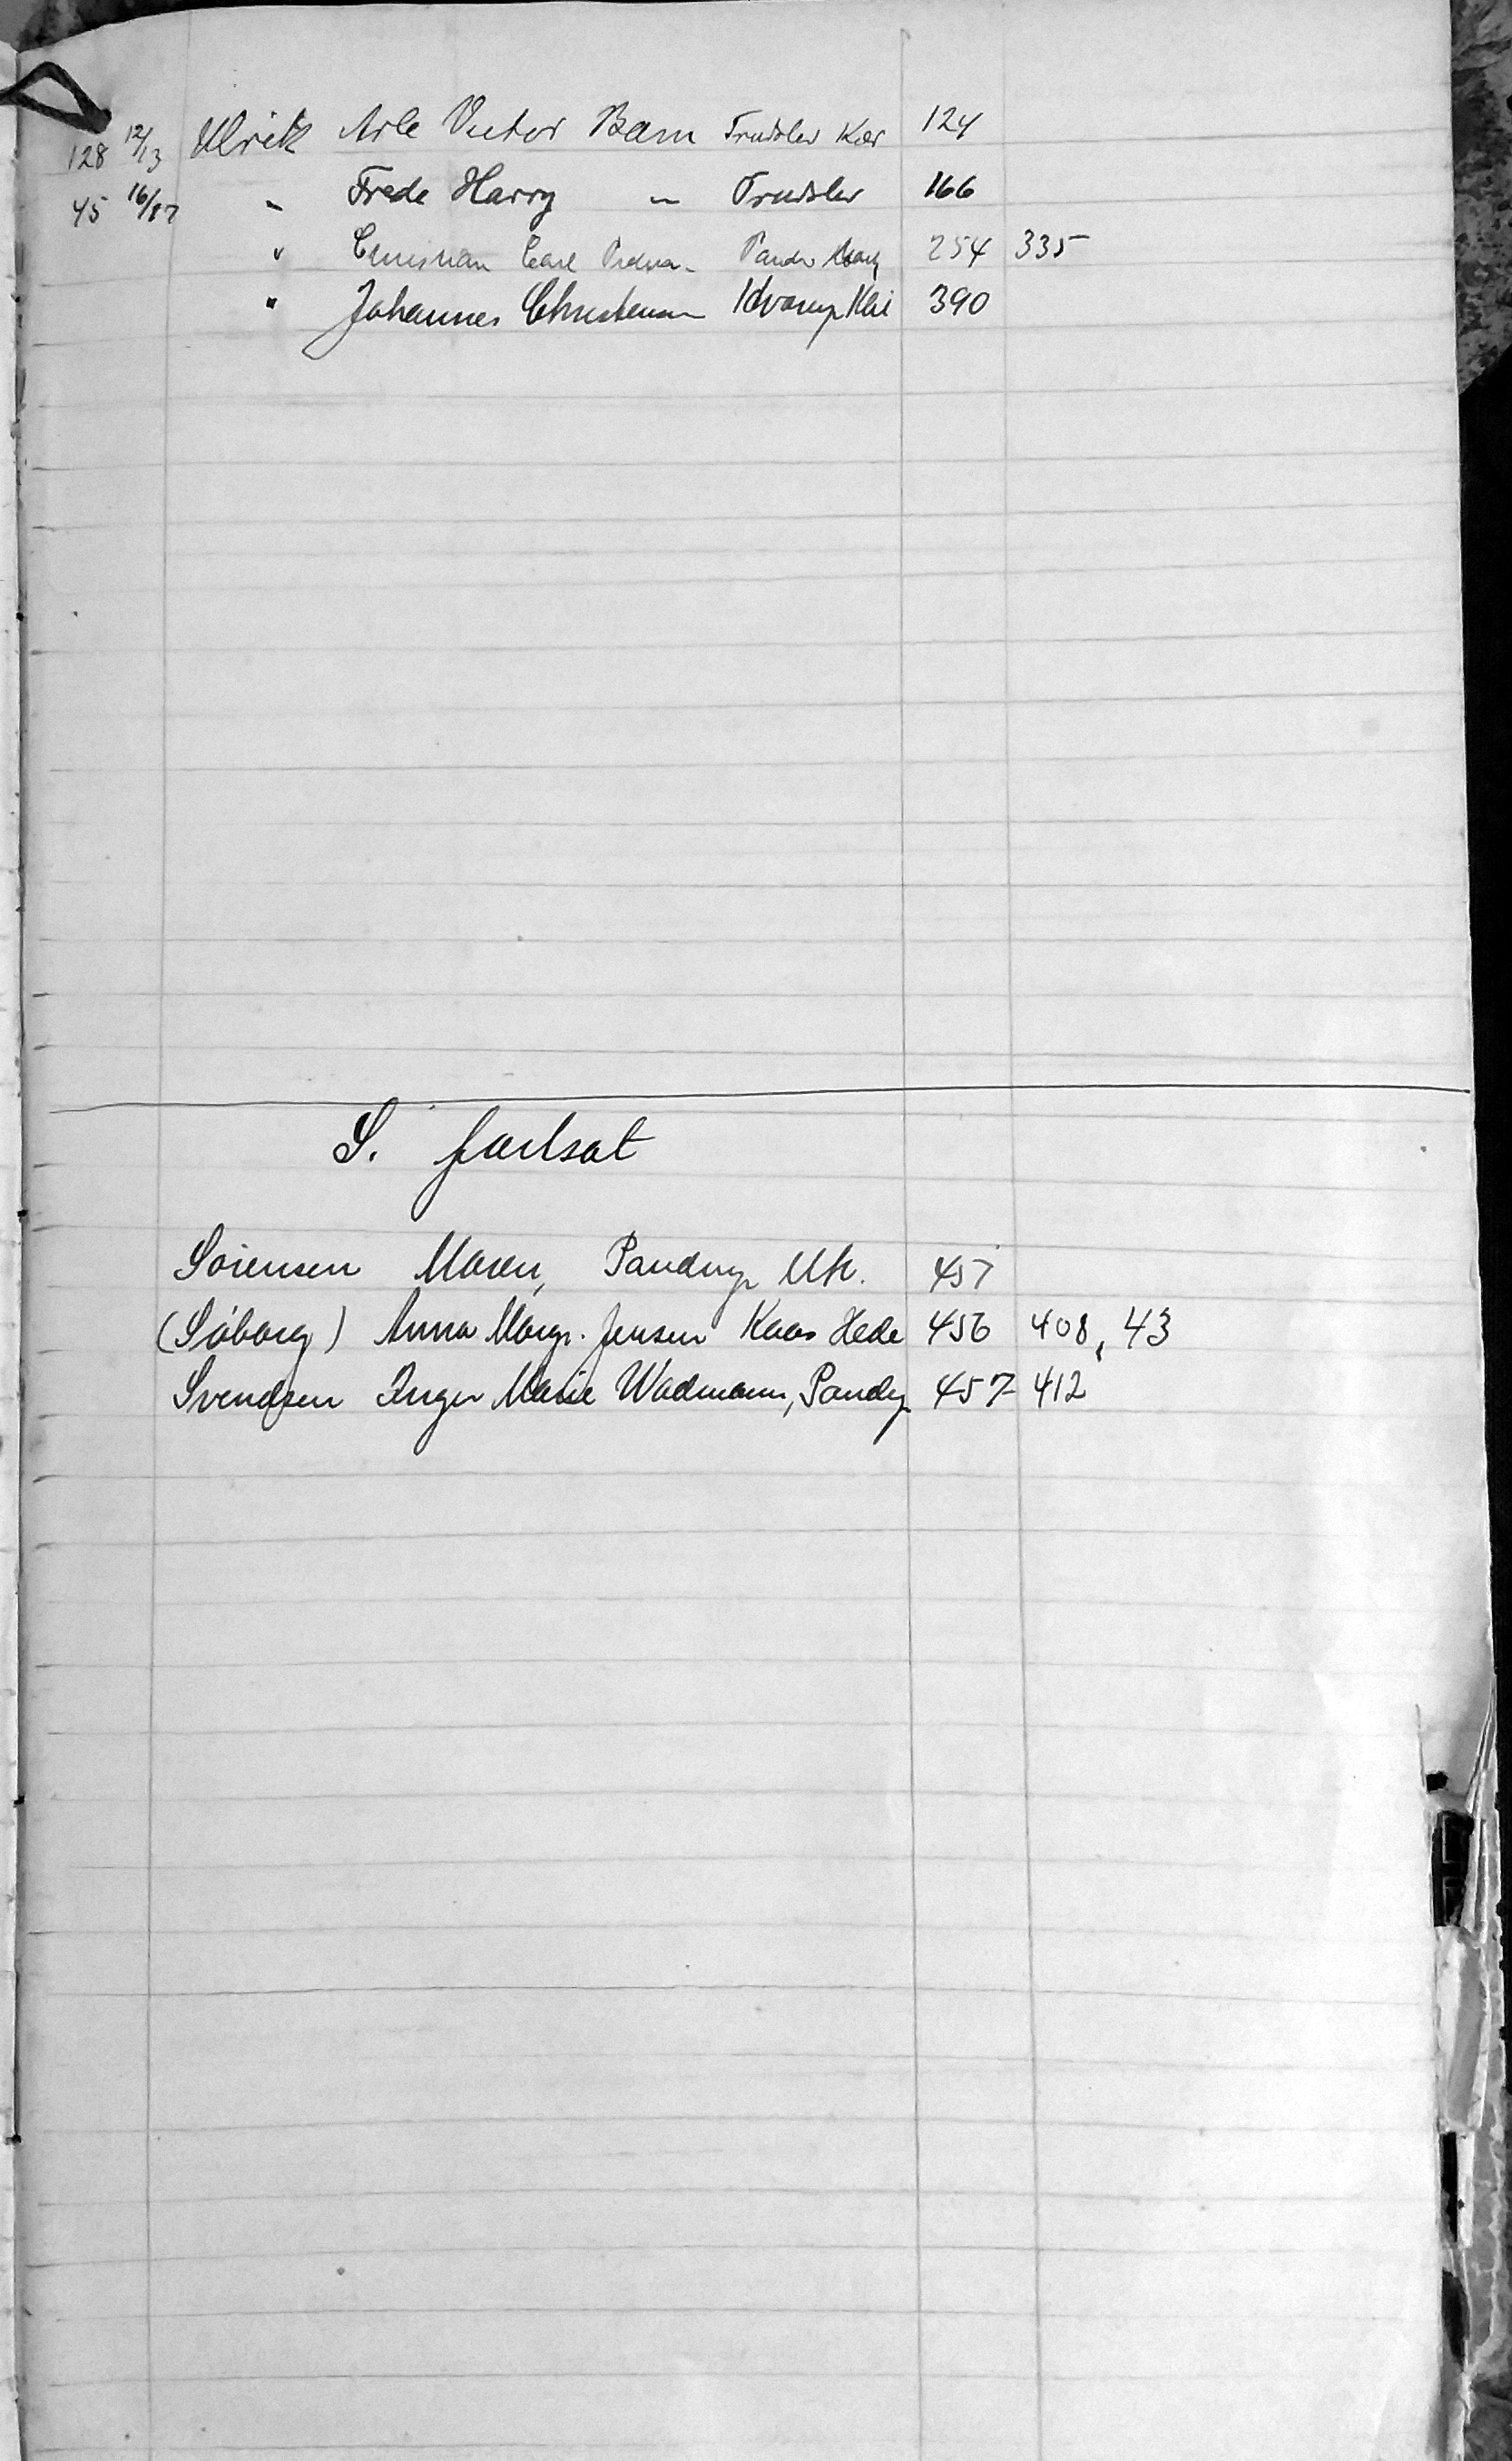 128 12/13 Ulrik Arle Victor Bam Trudslev Kær 124
45 16/87 " Frede Harry " Trudslev 166
" Christian Carl 254 335
" Johannes Christensen Hvorup Klit 390
S. fortsat
Sörensen Maren, Pandrup Uh. 457
(Söborg) Anna Margr. Jensen Kaas Hede 456 408, 43
Svendsen Inger Marie Wadmann, Pandrup 457 412